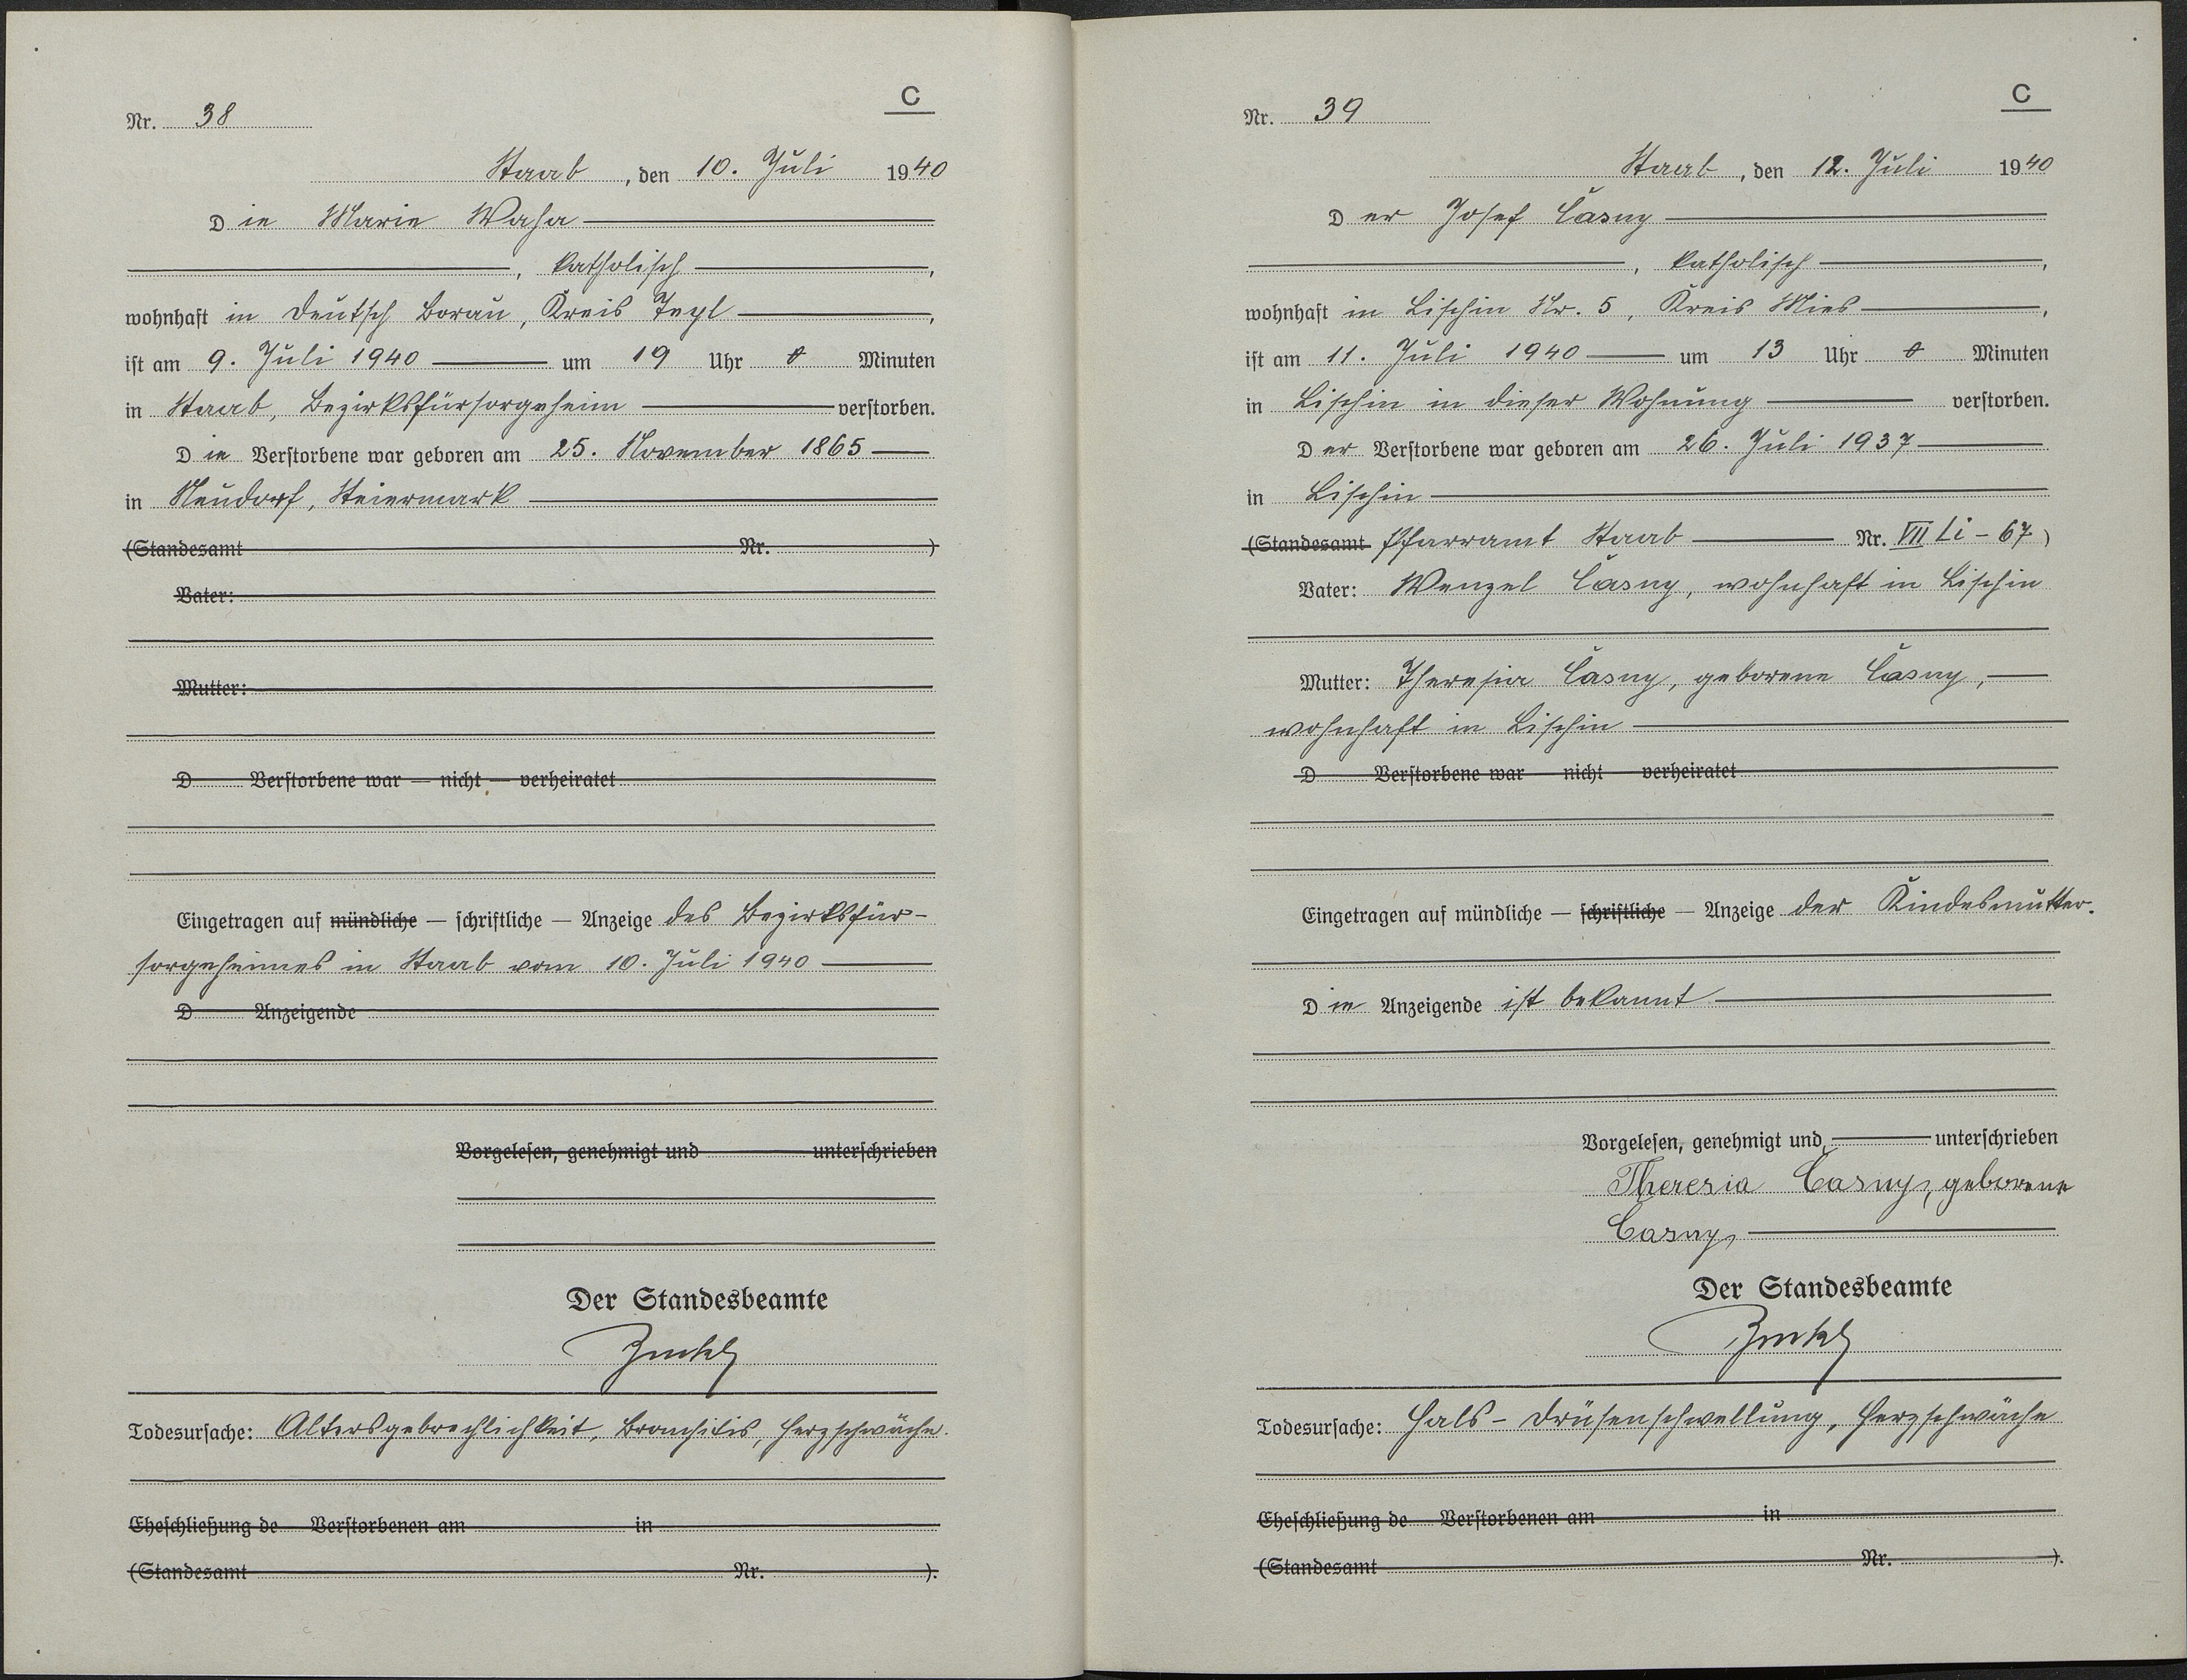 C
Nr. 38
Staab, den 10. Juli 1940
Die Marie Waha
, katholisch,
wohnhaft in Deutsch Borau, Kreis Tepl,
ist am 9. Juli 1940 um 19 Uhr 0 Minuten
in Staab, Bezirksfürsorgeheim verstorben.
Die Verstorbene war geboren am 25. November 1865
in Neudorf, Steiermark
(Standesamt Nr. )
Vater:
Mutter:
D Verstorbene war — nicht — verheiratet
Eingetragen auf mündliche — schriftliche — Anzeige des Bezirksfür-
sorgeheimes in Staab vom 10. Juli 1940
D Anzeigende
Vorgelesen, genehmigt und unterschrieben
Der Standesbeamte
Todesursache: Altersgebrechlichkeit, Bronchitis, Herzschwäche.
Eheschließung de Verstorbenen am in
(Standesamt Nr. ).
C
Nr. 39
Staab, den 12. Juli 1940
Der Josef Časny
, katholisch,
wohnhaft in Lischin Nr. 5, Kreis Mies,
ist am 11. Juli 1940 um 13 Uhr 0 Minuten
in Lischin in dieser Wohnung verstorben.
Der Verstorbene war geboren am 26. Juli 1937
in Lischin
(Standesamt Pfarramt Staab Nr. VII Li - 67)
Vater: Wenzel Časny, wohnhaft in Lischin
Mutter: Theresia Časny, geborene Časny,
wohnhaft in Lischin
D Verstorbene war — nicht — verheiratet
Eingetragen auf mündliche — schriftliche — Anzeige der Kindesmutter.
Die Anzeigende ist bekannt
Vorgelesen, genehmigt und unterschrieben
Theresia Časny, geborene
Časny
Der Standesbeamte
Todesursache: Hals-Drüsenschwellung, Herzschwäche
Eheschließung de Verstorbenen am in
(Standesamt Nr. ).